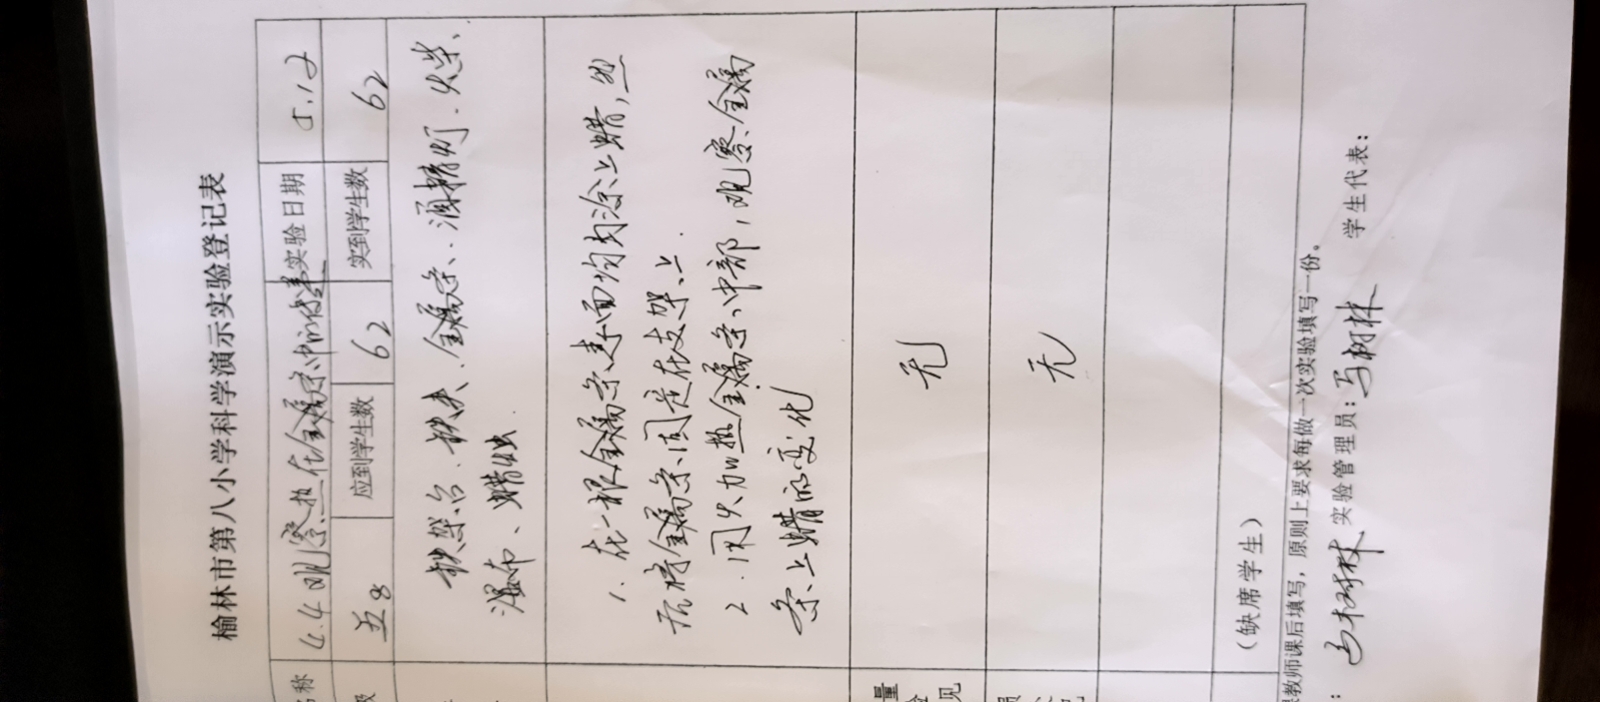 榆林市第八小学科学演示实验登记表
名称 4.4观察热在金属条中的传递 实验日期 5.12
级 五8 应到学生数 62 实到学生数 62
铁架台、铁夹、金属条、酒精灯、火柴、
湿布、蜡烛
1. 在一根金属条表面均匀涂上蜡,然
后将金属条固定在支架上.
2. 用火加热金属条中部,观察金属
条上蜡的变化
量
见
无
员
无
(缺席学生)
教师课后填写,原则上要求每做一次实验填写一份。
: 马树林 实验管理员: 马树林 学生代表: